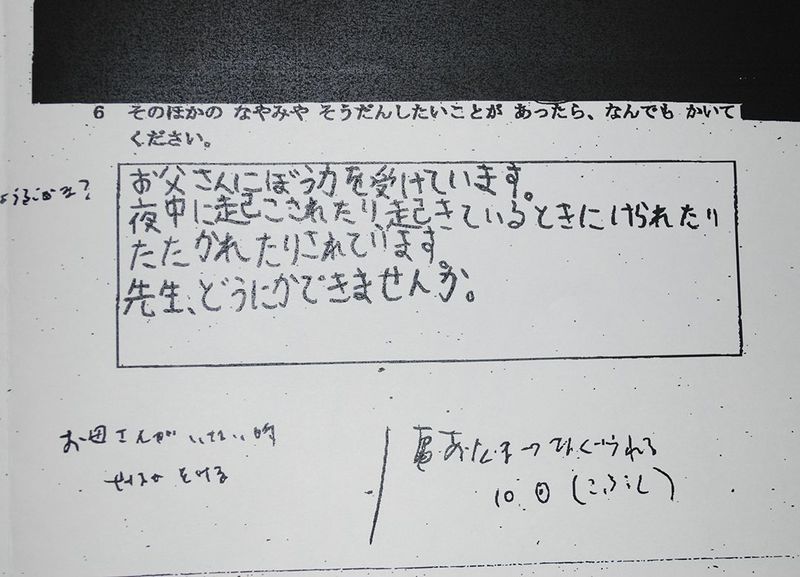 6 そのほかの なやみや そうだんしたいことが あったら、なんでも かいて
ください。
お父さんにぼう力を受けています。
夜中に起こされたり、起きているときにけられたり
たたかれたりされています。
先生、どうにかできませんか。
お母さんがいない時
あたま
なぐられる
10回(こぶし)